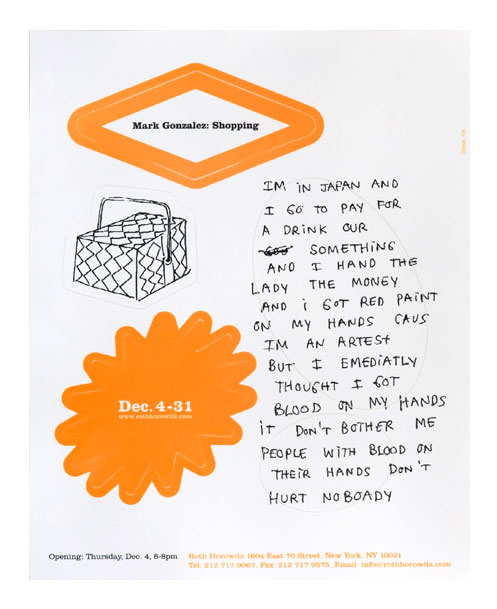 Mark Gonzalez: Shopping
IM IN JAPAN AND
I GO TO PAY FOR
A DRINK OUR
SOMETHING
AND I HAND THE
LADY THE MONEY
AND i GOT RED PAINT
ON MY HANDS CAUS
IM AN ARTEST
BUT I EMEDIATLY
THOUGHT I GOT
BLOOD ON MY HANDS
iT DON'T BOTHER ME
PEOPLE WITH BLOOD ON
THEIR HANDS DON'T
HURT NOBOADY
Dec. 4-31
www.rothhorowitz.com
Opening: Thursday, Dec. 4, 6-8pm
Roth Horowitz 160a East 70 Street, New York, NY 10021
Tel: 212 717 9067, Fax: 212 717 9575, Email: info@rothhorowitz.com